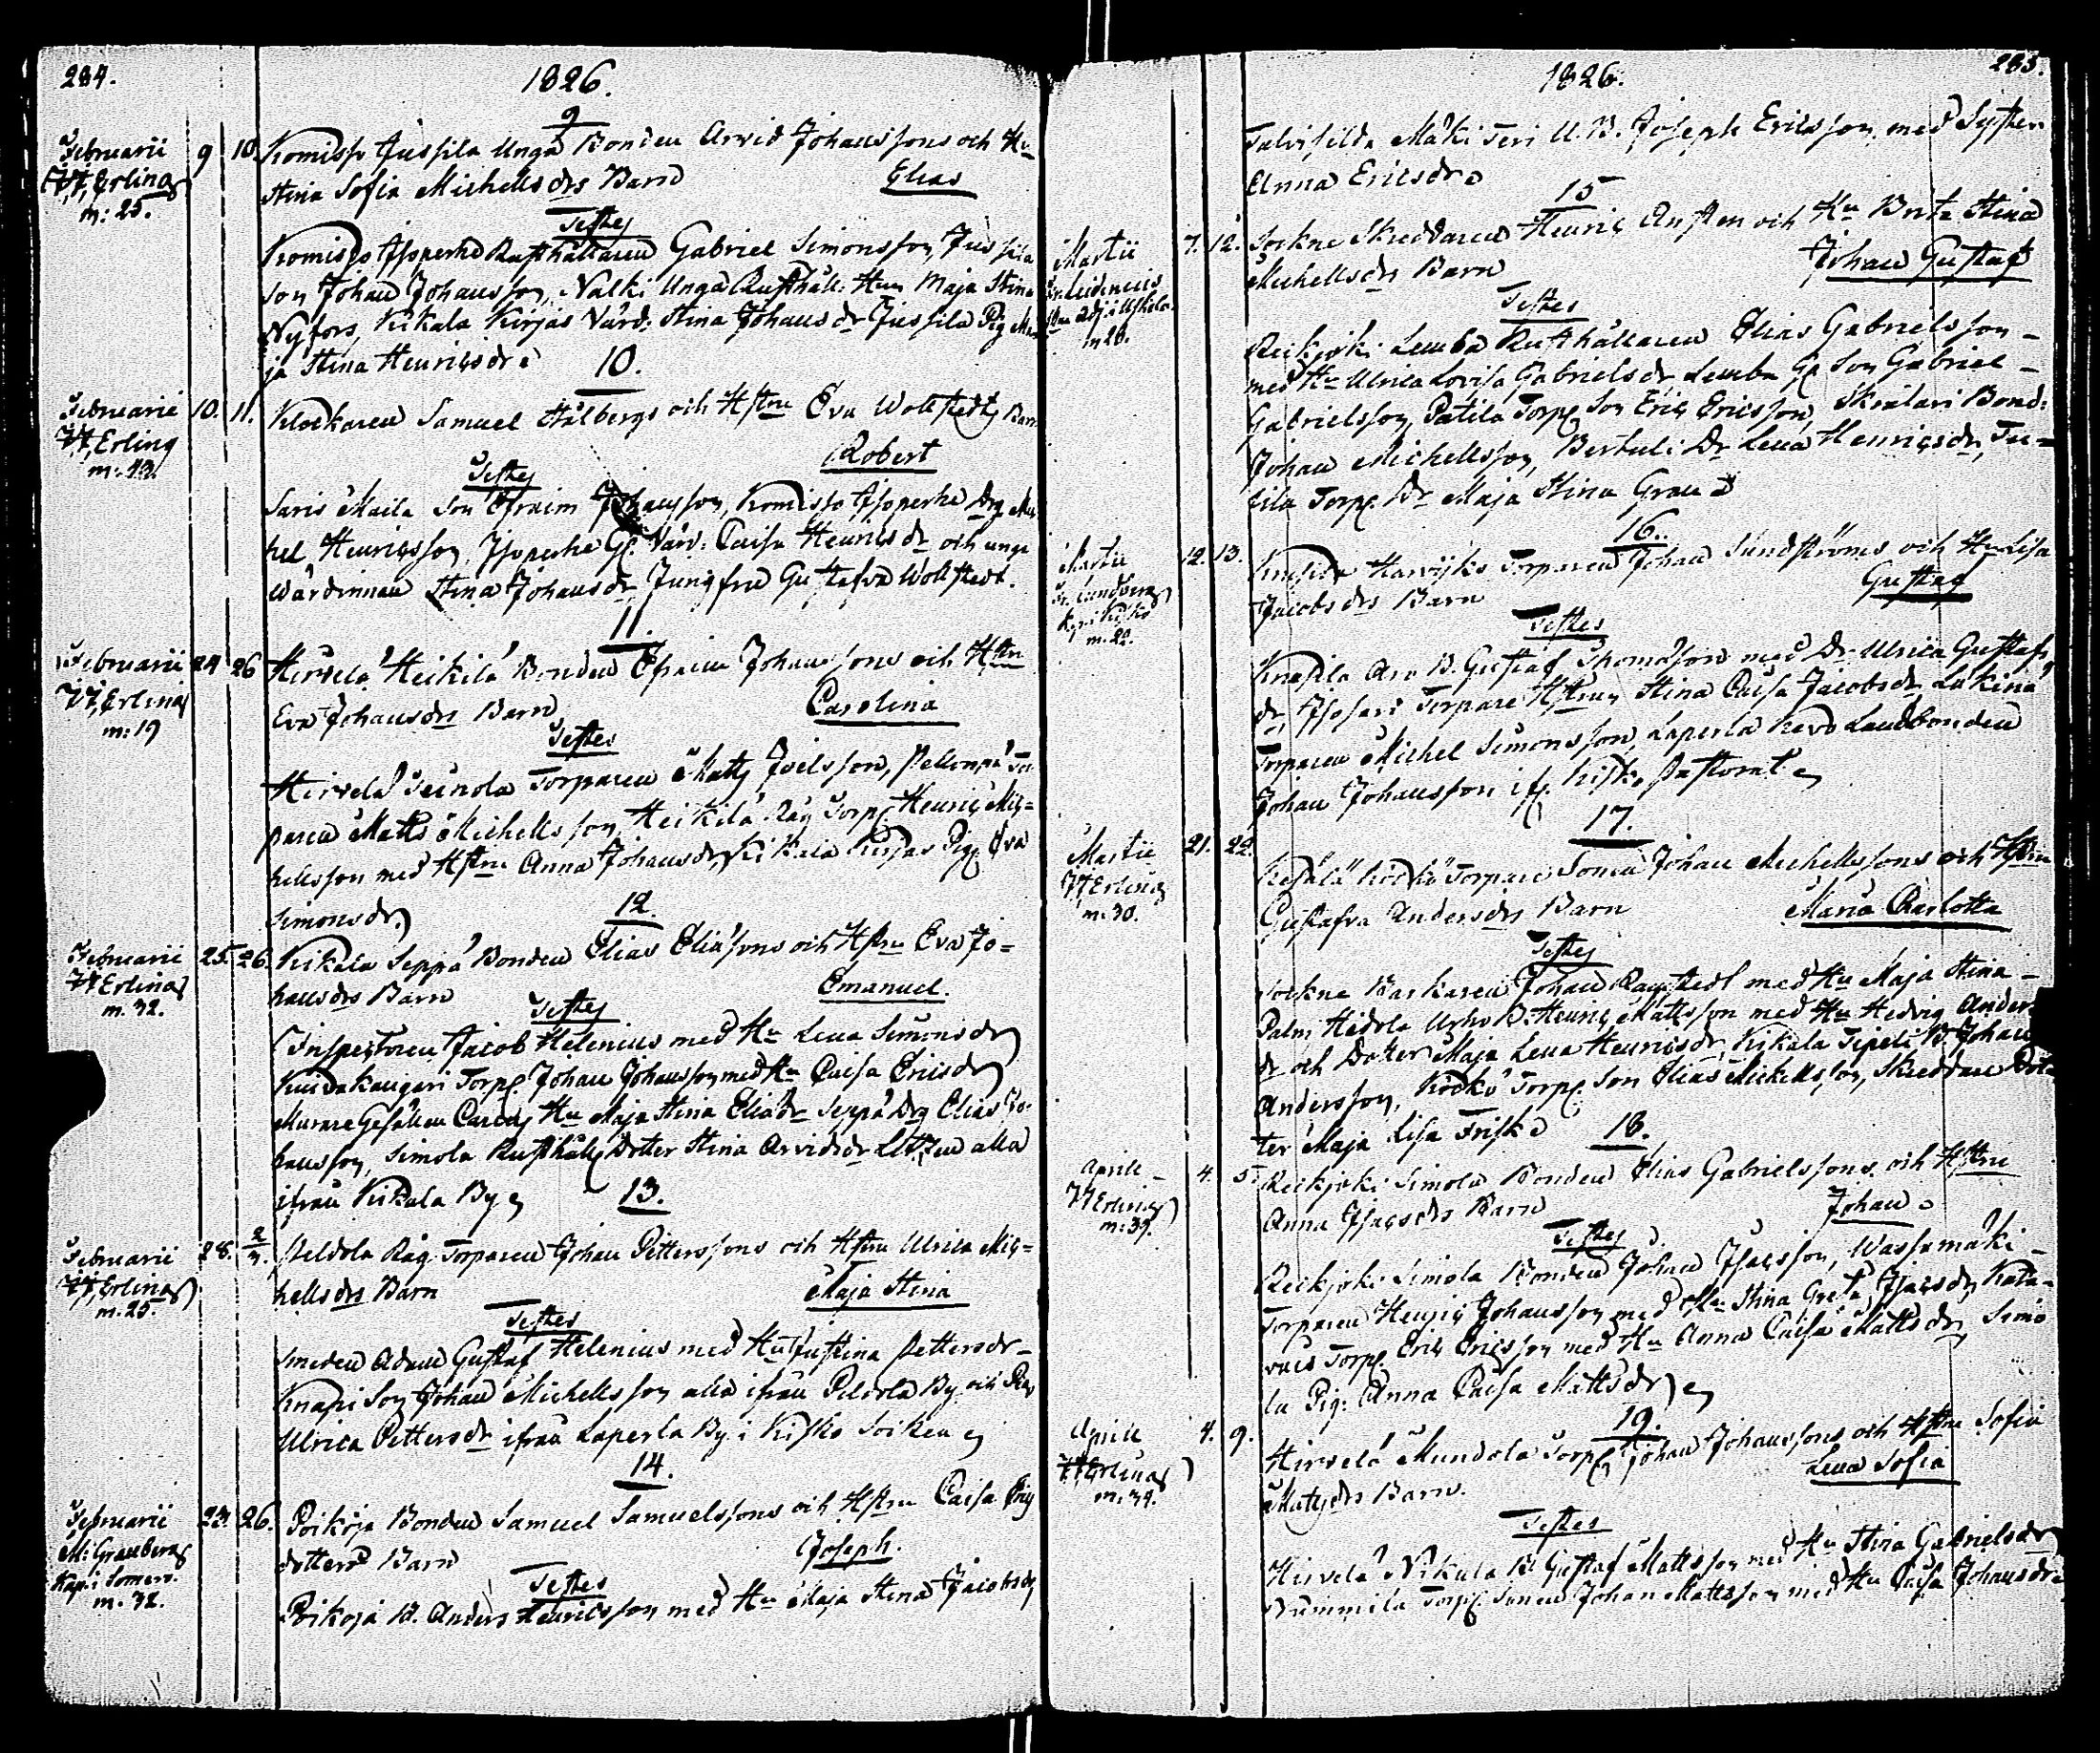 284.
1826.
9
Februarii 9 10. Komisso Jussila Unga Bonden Arvid Johanssons och Hu
Erling
m: 25.
Stina Sofia Michelsdrs Barn Elias
Testes
Komisso Isoperhe Rusthållaren Gabriel Simonsson, Jussila
Son Johan Johansson, Nalki Unga Rusthåll: Hun Maja Stina
Nyfors, Kikala Kirjas Värd: Stina Johansdr Jussila Pig Ma
ja Stina Henricsdr
10.
Februarii 10. 11. Klockaren Samuel Stålbergs och Hstru Eva Wollstedts Barn
Erling
m: 43.
Robert
Testes
Saris Maila Son Efraim Johansson, Komisso Isoperhe Drg Mic
hel Henricsson, Isoperhe Gl. Värd: Caisa Henricsdr och unga
Wärdinnan Stina Johansdr, Jungfru Gustafva Wollstedt.
11.
Februarii 24 26 Hirvelä Heikilä Bonden Efraim Johanssons och Hstru
Erling
m: 19
Eva Johansdrs Barn Carolina
Testes
Hirvelä Torparen Matts Joelsson, Tor-
paren Matts Michelsson, Heikilä Råg Torp. Henric Mic=
helsson med Hstru Anna Johansdr, Kikala Kirjas Pig. Eva
Simonsdr
12.
Februarii 25. 26. Kikala Seppä Bonden Elias Eliasons och Hstru Eva Jo=
Erling
m. 32.
hansdrs Barn Emanuel.
Testes
Inspectoren Jacob Helenius med Hu Lena Simonsdr
Torp. Johan Johansson med Hu Caisa Ericsdr
Murare Gesällen Hu Maja Stina Eliædr Seppä Drg Elias Jo-
hansson, Simola Rusthåll. Dotter Stina Arvidsdr alla
ifrån Kikala By
13.
Februarii 28. 2/3. Peldola Råg Torparen Johan Petterssons och Hstru Ulrica Mic=
Erling
m. 25.
helsdrs Barn Maja Stina
Testes
Smeden Adam Gustaf Helenius med Hu Justina Pettersdr
Knapi Son Johan Michelsson alla ifrån Peldola By och Pig.
Ulrica Pettersdr ifrån Laperla By i Kisko Socken
14.
Februarii 23. 26. Poikoja Bonden Samuel Samuelssons och Hstru Caisa Eric
M: Granberg
Kap. i Somero.
m. 32.
dotters Barn Joseph.
Testes
Poikoja B. Anders Henricsson med Hu Maja Stina Jacobsdr
1826.
285.
Talvisilda Mäki Teri U. B. Joseph Ericsson, med Syster
Anna Ericsdr
15
Martii 7. 12. Sockne Skreddaren Henric Ansten och Hu Brita Stina
m 28.
Michelsdrs Barn Johan Gustaf
Testes
Reikjoki Lemba Rusthållaren Elias Gabrielsson
med Hu Ulrica Lovisa Gabrielsdr, Lemba Gl Son Gabriel
Gabrielsson, Patila Torp. Son Eric Ericsson, Skräfari Bond:
Johan Michelsson, Bertuli Dr Lena Henricsdr,
Torp. Dr Maja Stina Gran
16.
Martii 12. 13. Torparen Johan Sundströms och Hu Lisa
Lundberg
Kisko
m. 22.
Jacobsdrs Barn Gustaf
Testes
Knapila Aro B. Gustaf Thomasson med Dr Ulrica Gustafs
dr, Isosari Torpare Hstrun Stina Caisa Jacobsdr,
Torparen Michel Simonsson, Laperla Landbonden
Johan Johansson if. Kisko Pastorat
17.
Martii 21. 22. Torpare Sonen Johan Michelssons och Hstru
Erling
m. 30.
Gustafva Andersdrs Barn Maria Charlotta
Testes
Sockne Barkaren Johan med Hu Maja Stina
Palm, Hidola Urho B. Henric Mattsson med Hu Hedvig Anders
dr och Dotter Maja Lena Henricsdr, Kikala Sipeli B. Johan
Andersson, Torp. Son Elias Michelsson, Skreddare Dot
ter Maja Lisa Frisk
18.
Aprill 4. 5. Reikjoki Simola Bonden Elias Gabrielssons och Hstru
Erling
m: 39.
Anna Isacsdrs Barn Johan
Testes
Reikjoki Simola Bonden Johan Isacsson, Wassamäki
Torparen Henric Johansson med Hu Stina Greta Isacsdr, Kata-
Torp. Eric Ericsson med Hu Anna Caisa Mattsdr, Simo
la Pig: Anna Caisa Mattsdr
19.
Aprill 4. 9. Hirvelä Mundola Torp. Johan Johanssons och Hstru Sofia
Erling
m. 34.
Mattsdrs Barn. Lena Sofia
Testes
Hirvelä Nikula B. Gustaf Mattsson med Hu Stina Gabrielsdr
Torp. Sonen Johan Mattsson med Hu Caisa Johansdr